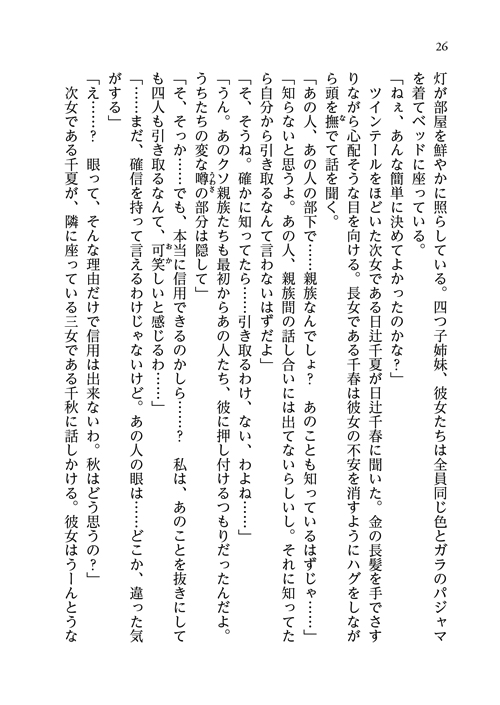 26
灯が部屋を鮮やかに照らしている。四つ子姉妹、彼女たちは全員同じ色とガラのパジャマ
を着てベッドに座っている。
「ねぇ、あんな簡単に決めてよかったのかな？」
ツインテールをほどいた次女である日辻千夏が日辻千春に聞いた。金の長髪を手でさす
りながら心配そうな目を向ける。長女である千春は彼女の不安を消すようにハグをしなが
ら頭を撫でて話を聞く。
「あの人、あの人の部下で……親族なんでしょ？　あのことも知っているはずじゃ……」
「知らないと思うよ。あの人、親族間の話し合いには出てないらしいし。それに知ってた
ら自分から引き取るなんて言わないはずだよ」
「そ、そうね。確かに知ってたら……引き取るわけ、ない、わよね……」
「うん。あのクソ親族たちも最初からあの人たち、彼に押し付けるつもりだったんだよ。
うちたちの変な噂の部分は隠して」
「そ、そっか……でも、本当に信用できるのかしら……？　私は、あのことを抜きにして
も四人も引き取るなんて、可笑しいと感じるわ……」
「……まだ、確信を持って言えるわけじゃないけど。あの人の眼は……どこか、違った気
がする」
「え……？　眼って、そんな理由だけで信用は出来ないわ。秋はどう思うの？」
次女である千夏が、隣に座っている三女である千秋に話しかける。彼女はうーんとうな